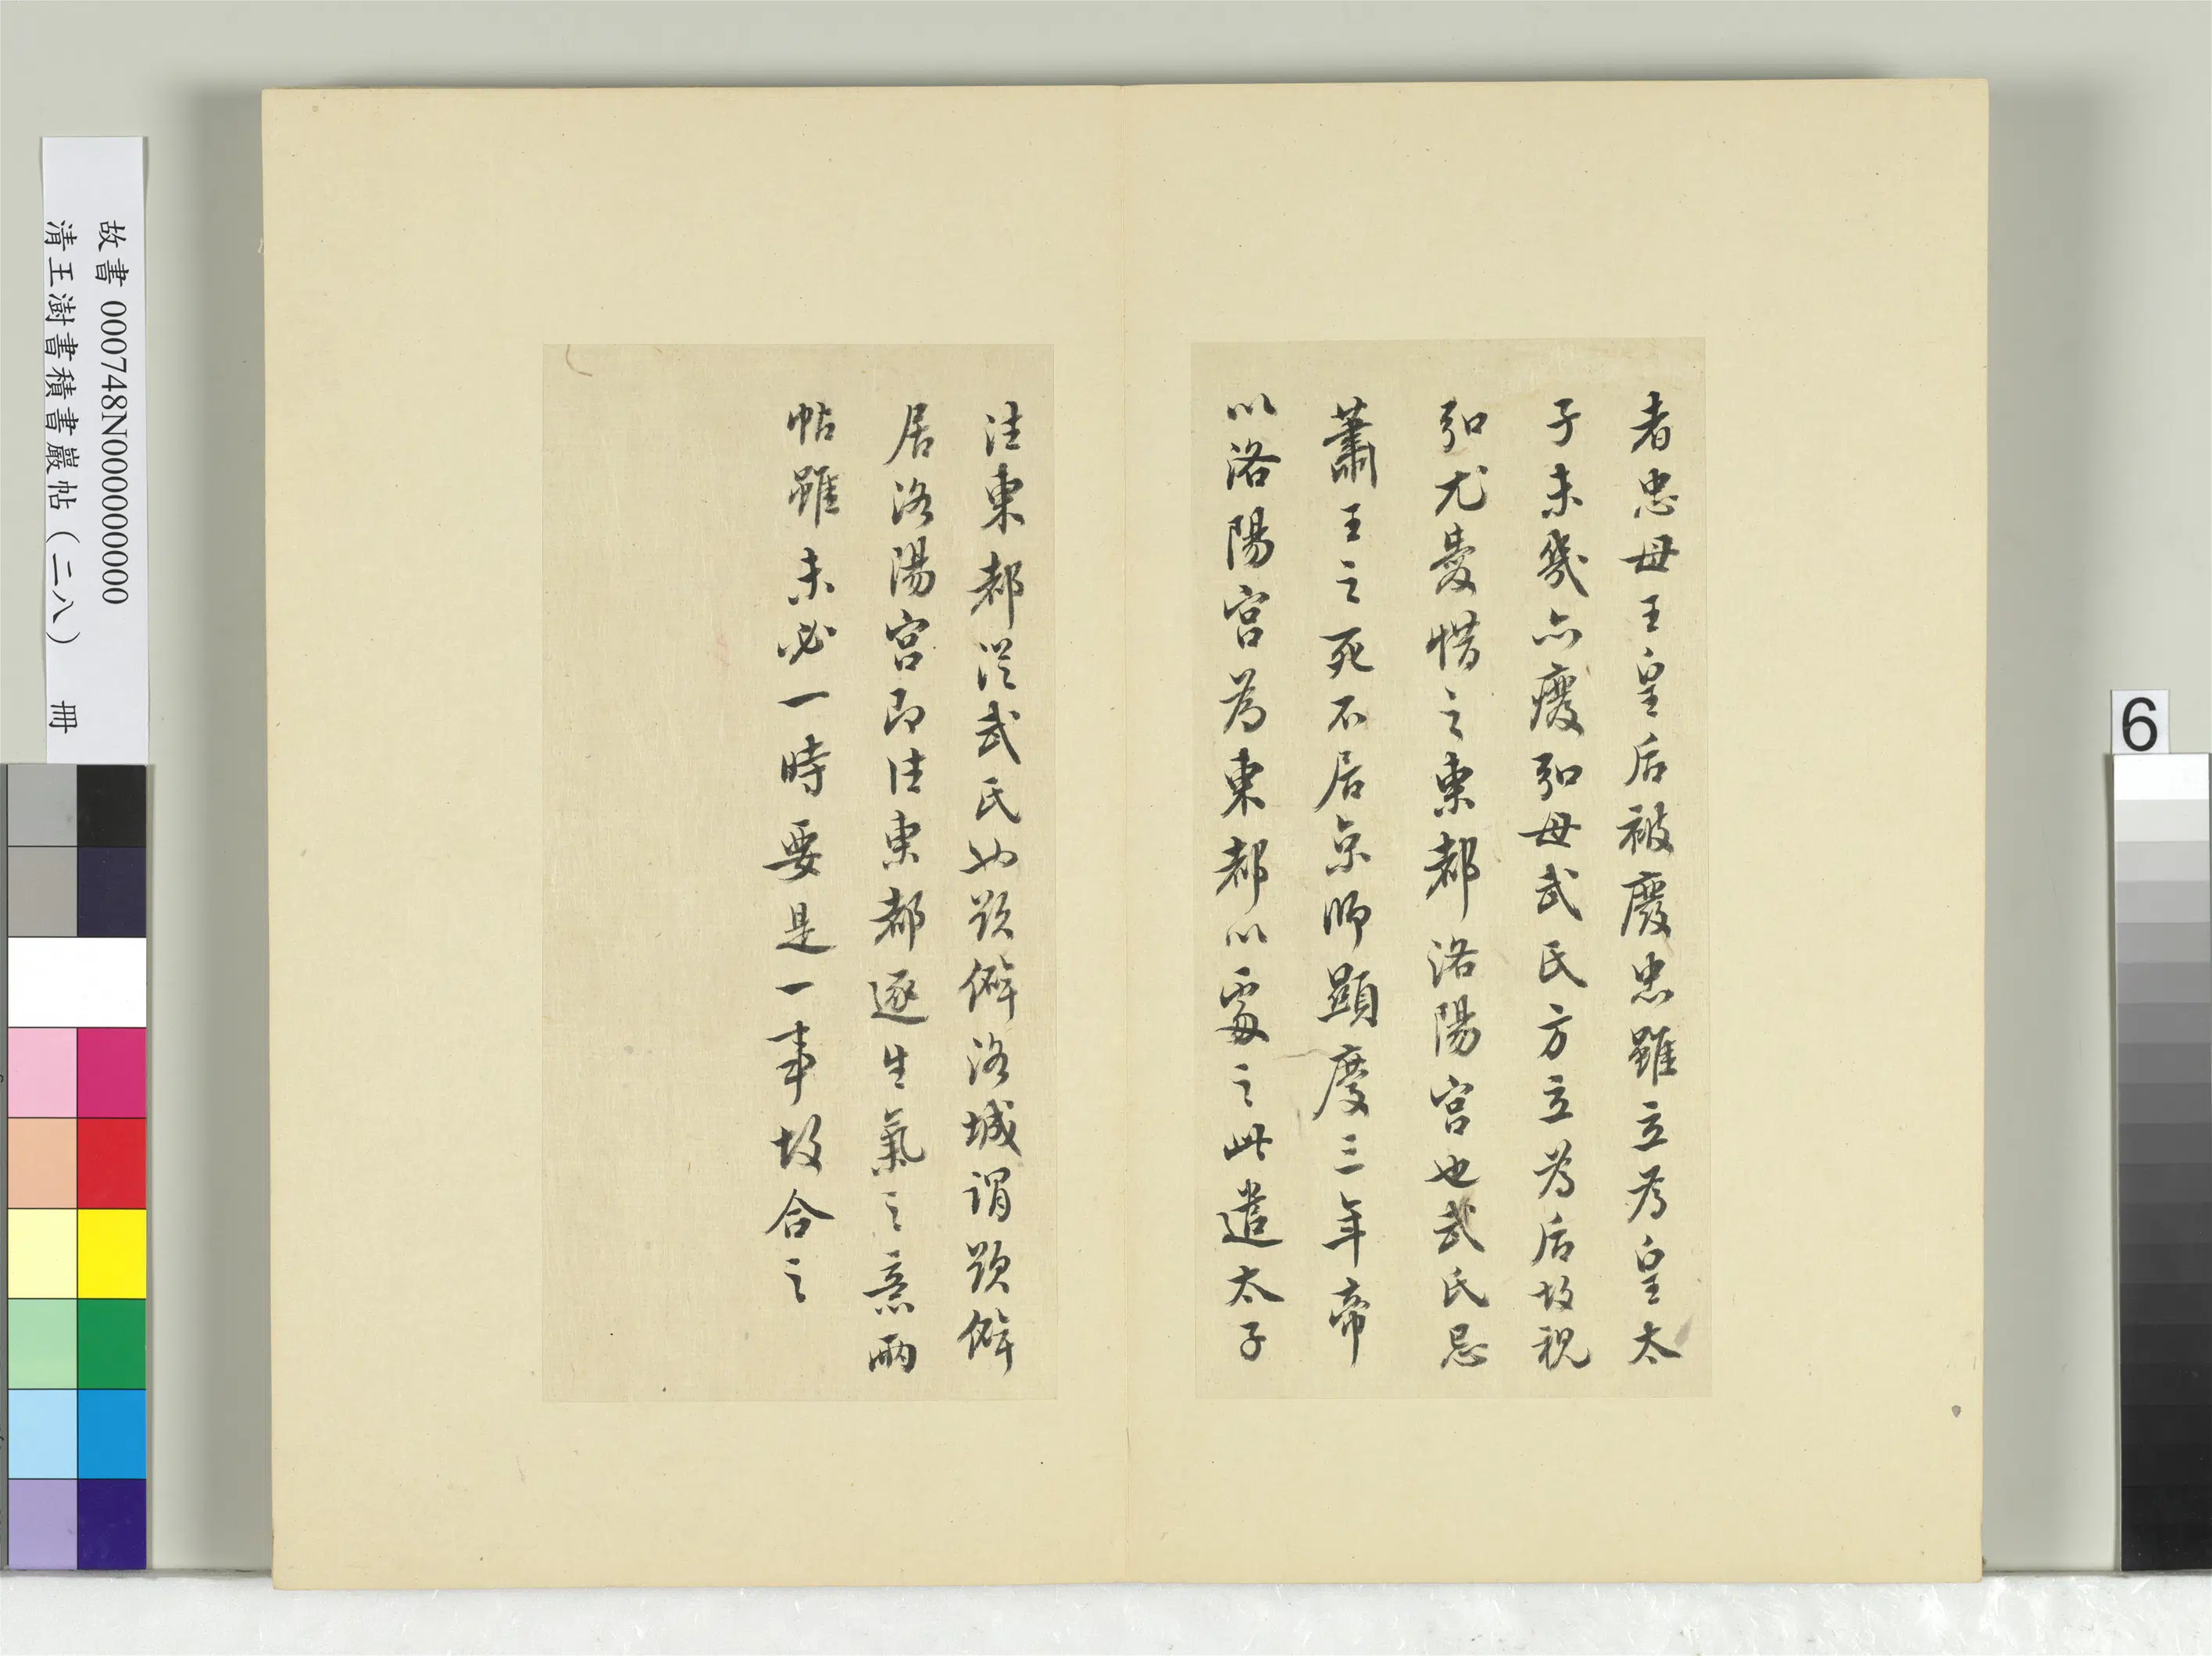 者忠母王皇后被廢忠雖立為皇太
子未幾亦廢弘母武氏方立為后故視
弘尤憂惜之東都洛陽宮也武氏忌
蕭王之死不居京師顯慶三年帝
以洛陽宮為東都以處之此遣太子
往東都從武氏也默僻洛城謂默僻
居洛陽宮即往東都逐生氣之意兩
帖雖未必一時要是一事故合之
故書 000748N000000000
清王澍書積書巖帖(二八) 冊
6